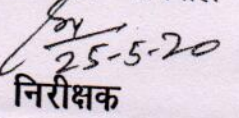 25-5-20
निरीक्षक